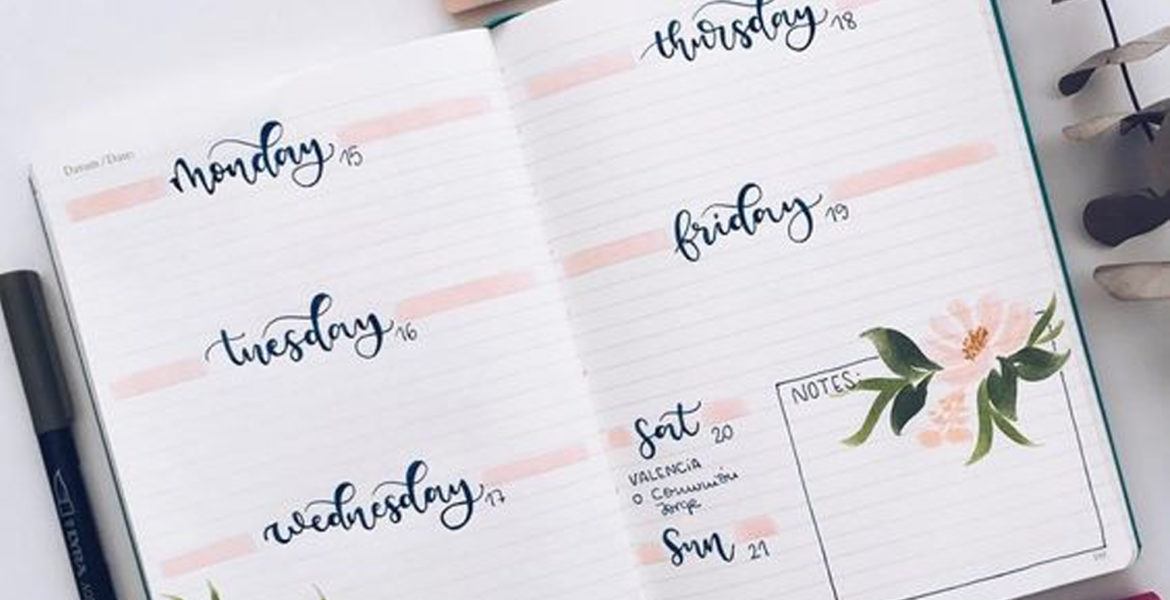 Datum / Date:
monday 15
tuesday 16
wednesday 17
thursday 18
friday 19
sat 20
VALENCiA
o Comunión
Jorge
sun 21
NOTES: